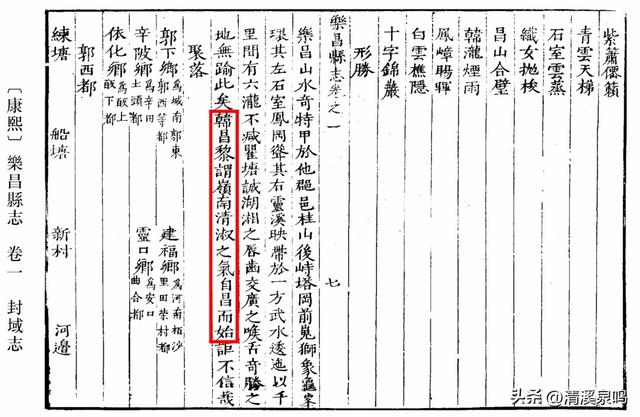 紫簫僊籟
青雲天梯
石室雲蒸
織女拋梭
昌山合璧
韓瀧煙雨
鳳嶂暘暉
白雲樵隱
十字錦巖
形勝
樂昌縣志卷之一
七
樂昌山水奇特甲於他郡邑桂山後峙塔岡前嵬獅象龜峯
環其左石室鳳岡聳其右靈溪映帶於一方武水逶迤以千
里間有六瀧不减瞿塘誠湖湘之唇齒交廣之喉舌奇勝之
地無踰此矣韓昌黎謂嶺南清淑之氣自昌而始詎不信哉
聚落
郭下鄉為城南郭東郭西等都
建福鄉為河南栢沙里田柴村都
辛陂鄉為辛田土頭都
靈口鄉為安口曲合都
依化鄉為㽵上㽵下都
郭西都
練塘
船塘
新村
河邊
〔康熙〕樂昌縣志 卷一 封域志
头条 @清溪泉鸣